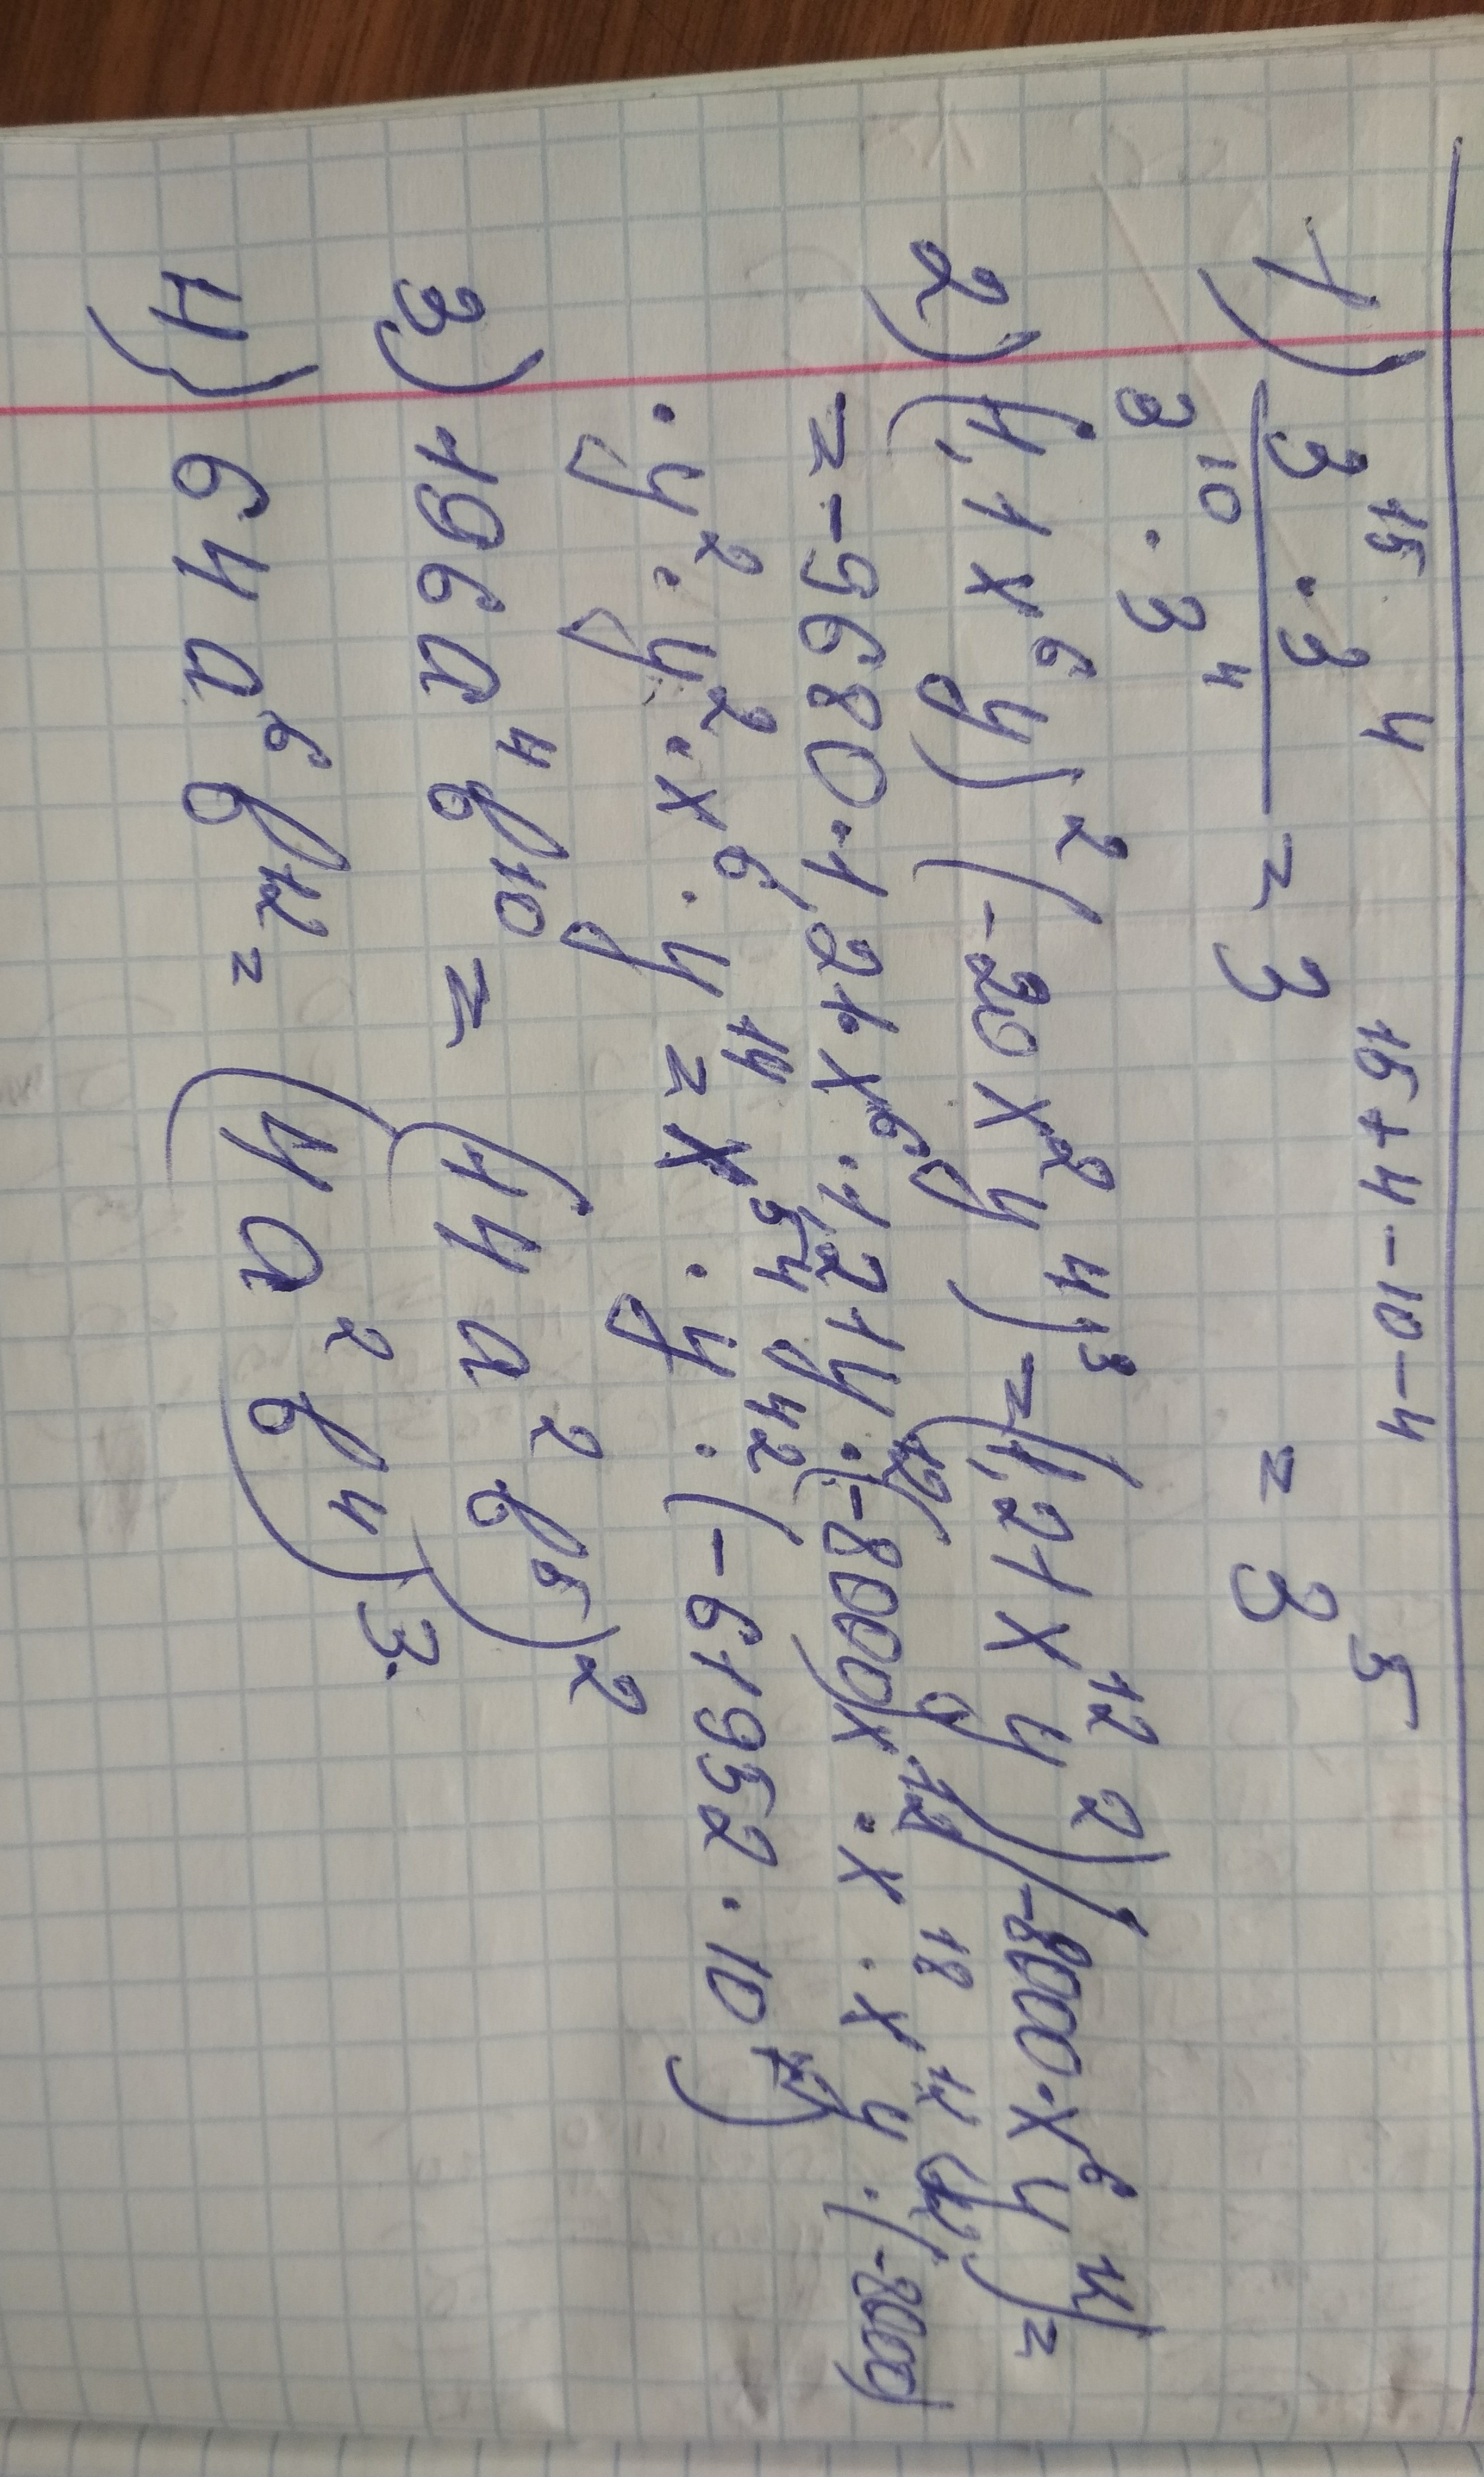 1) 3^15 · 3^4 / 3^10 · 3^4 = 3^15+4-10-4 = 3^5
2) (1,1x^6y)^2 (-20x^2y^4)^3 = (1,21x^12y^2)(-8000·x^6y^14) =
= -9680·1,21·x^6·1,21y^12·(-8000)x^12·x^18·x^14y·(-8000)
·y^2·y^2·x^6·y^14 = x^54·y^42·(-61952·10^4)
3) 196a^4b^10 = (14a^2b^5)^2
4) 64a^6b^12 = (4a^2b^4)^3